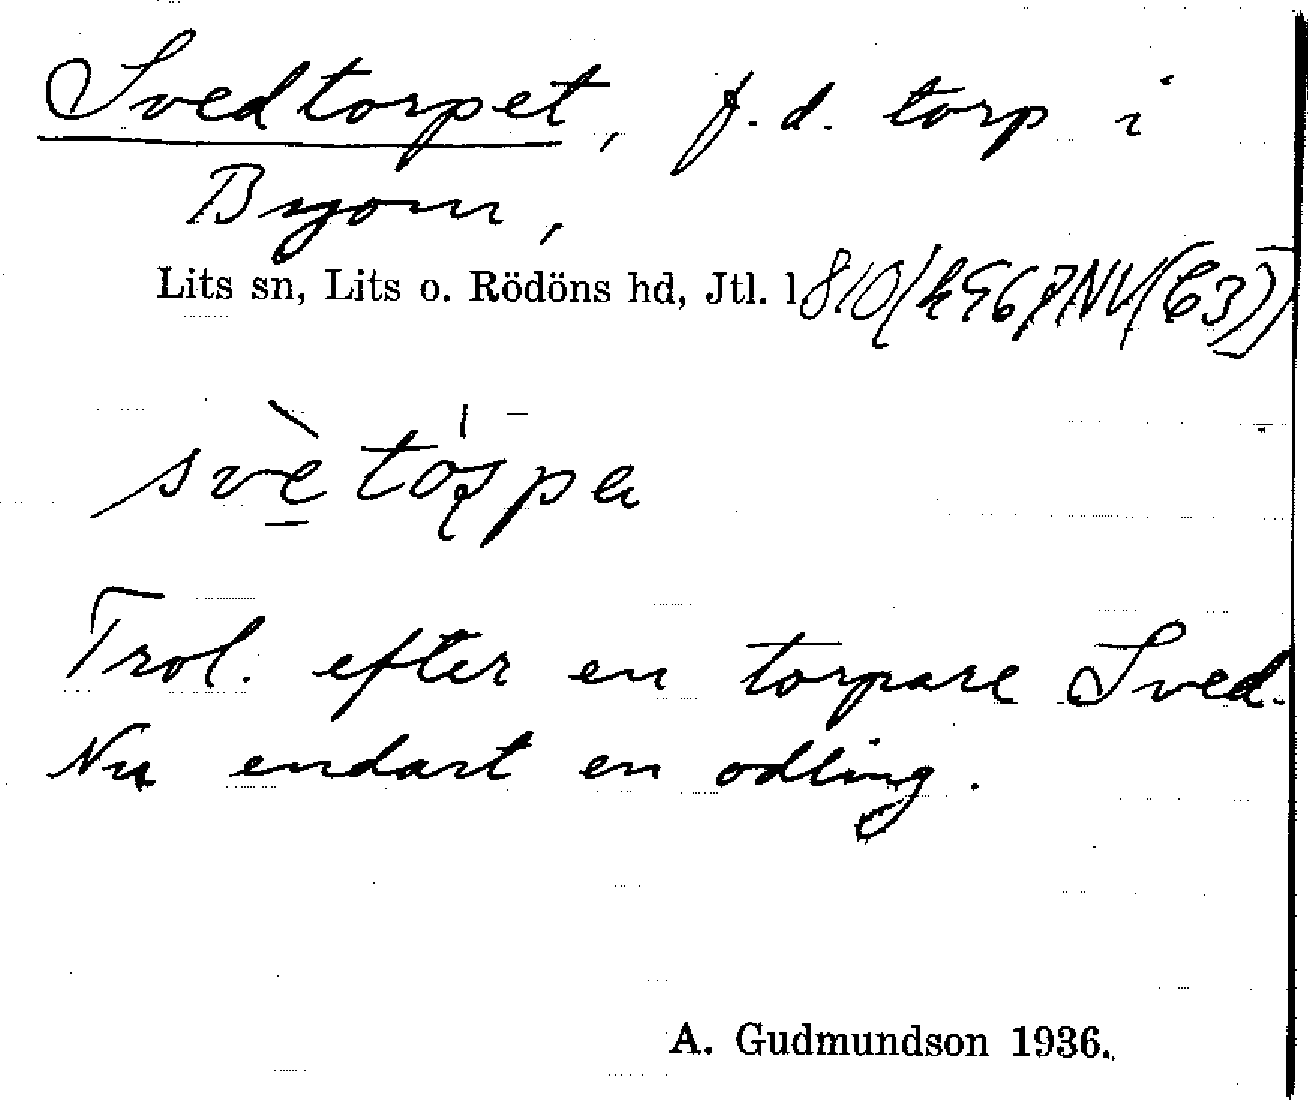 Svedtorpet, f.d. torp i
Bryom,
Lits sn, Lits o. Rödöns hd, Jtl. l
Trol. efter en torpare Sved.
Nu endart en odling.
A. Gudmundson 1936.